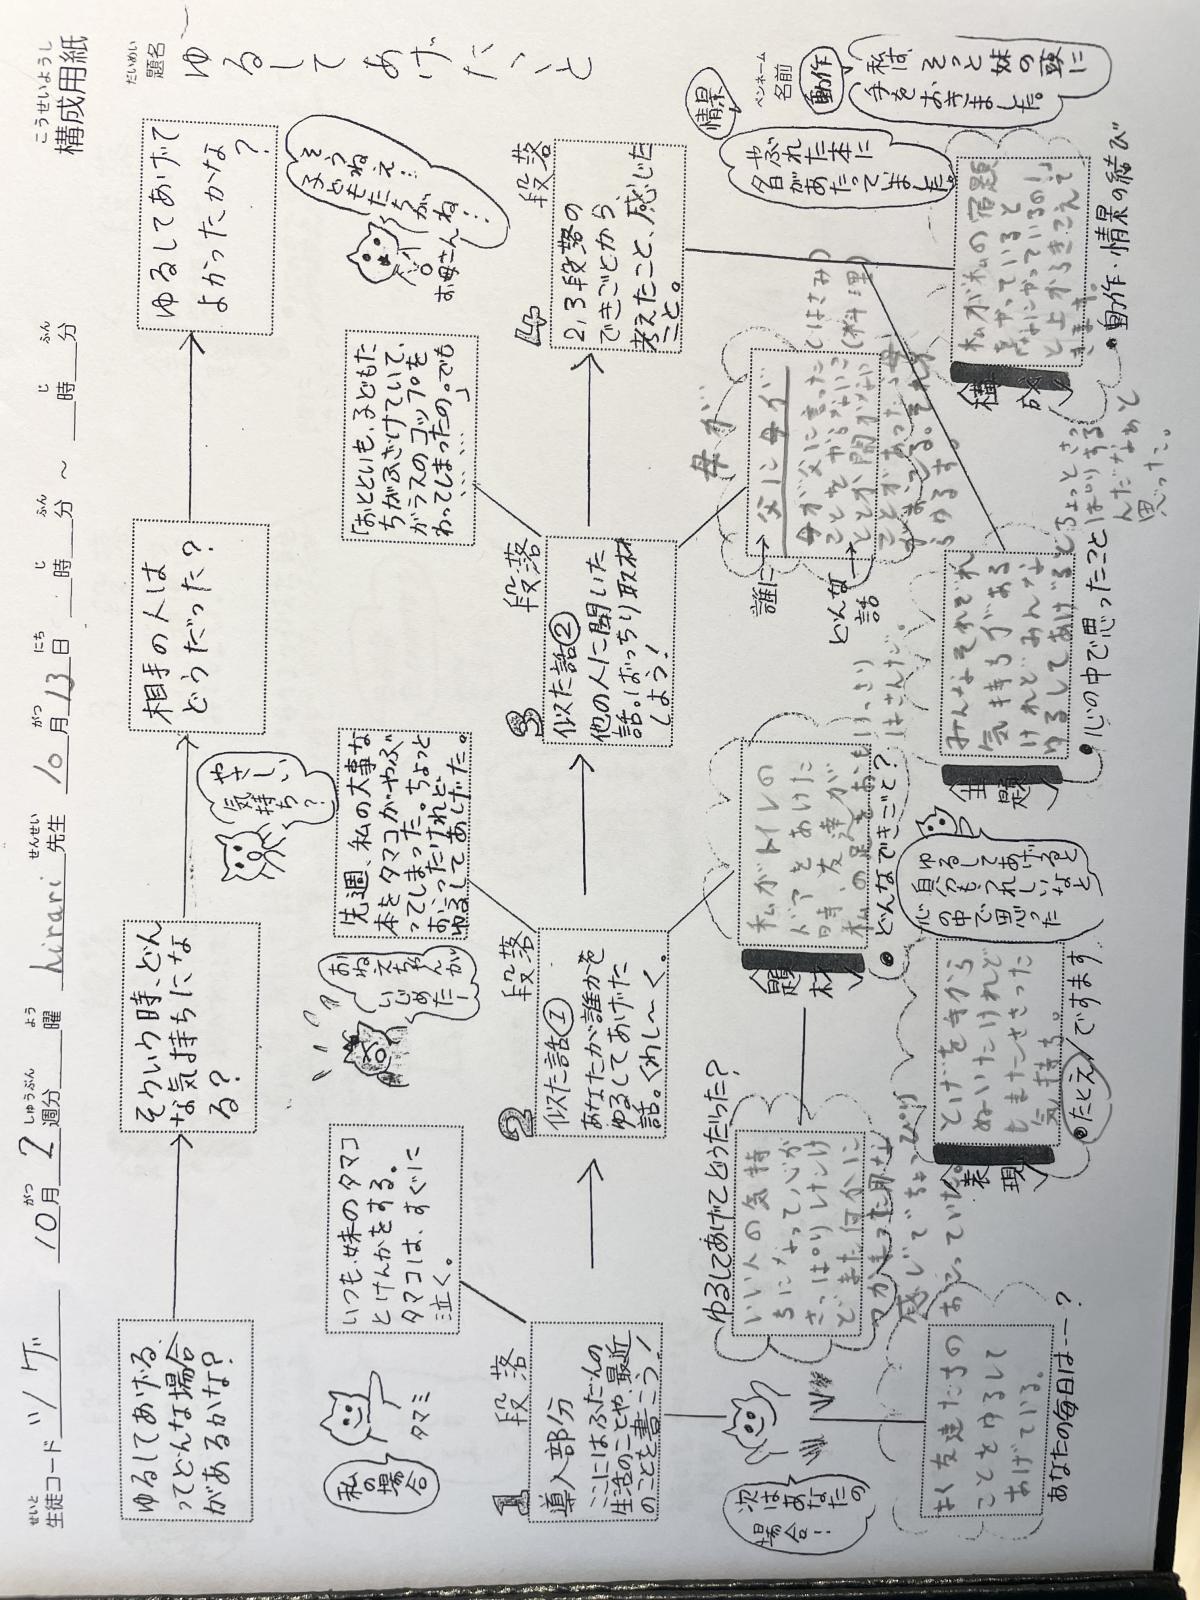 こうせいようし
構成用紙
だいめい
題名
ゆるしてあげたこと
せいと
生徒コード ツゲ
がつ しゅうぶん よう
10月2週分 曜
せんせい
hirari先生
がつ にち
10月13日
じ ふん じ ふん
時 分 〜 時 分
ペンネーム
名前
ゆるしてあげる
ってどんな場合
があるかな?
そういう時、どん
な気持ちにな
る?
相手の人は
どうだった?
ゆるしてあげて
よかったかな
?
私の
場合
タマミ
いつも、妹のタマコ
とけんかをする。
タマコは、すぐに
泣く。
おねえちゃんが
いじめたー
先週、私の大事な
本をタマコがやぶ
ってしまった。ちょっと
おこったけれど
ゆるしてあげた。
やさしい
気持ち?
「おとといも、子どもた
ちがふざけていて、
ガラスのコップを
わってしまったの。でも
……………」
そうねえ…
子どもたちが
ね…
お母さん
1
段落
導入部分
ここにはふだんの
生活のことや、最近
のことを書こう!
2
段落
似た話①
あなたが誰かを
ゆるしてあげた
話。くわし〜く。
3
段落
似た話②
他の人に聞いた
話。ばっちり取材
しよう!
4
段落
2,3段落の
できごとから
考えたこと、感じた
こと。
情景
やぶれた本に
名があたっていました。
動作
私は、そっと妹の頭に
手をおきました。
次はあなたの
場合!
よく友達たちの
ことをゆるして
あげている。
あなたの毎日は…?
ゆるしてあげてどうだった?
いい人の気持
ちになって心が
さっぱりしたけ
どまた何分に
感じでちょっぴり
おこっていた。
題材
私がトイレの
ドアをあけた
時、友達が
私の足をおもいっきり
はさんだ。
●どんなできごと?
表現
とげを手から
ぬいたけれど
もまたささった
気持ち。
●たとえ/ですます
ゆるしてあげると
自分もうれしいなと
心の中で思った
主題
みんなそれぞれ
気持ちがある
けれどみんな
ゆるしてあげると
ちょっとさっ
ぱりする
んだなあと
思った。
●心の中で思ったこと
誰に→
母が
父に母が
母が父に言った(はさみ)
どんな
話
(料理)
構成
私が私の宿題
をやっていると
「なにやっているの!」
と上からきこえて
きます。
●動作・情景の結び